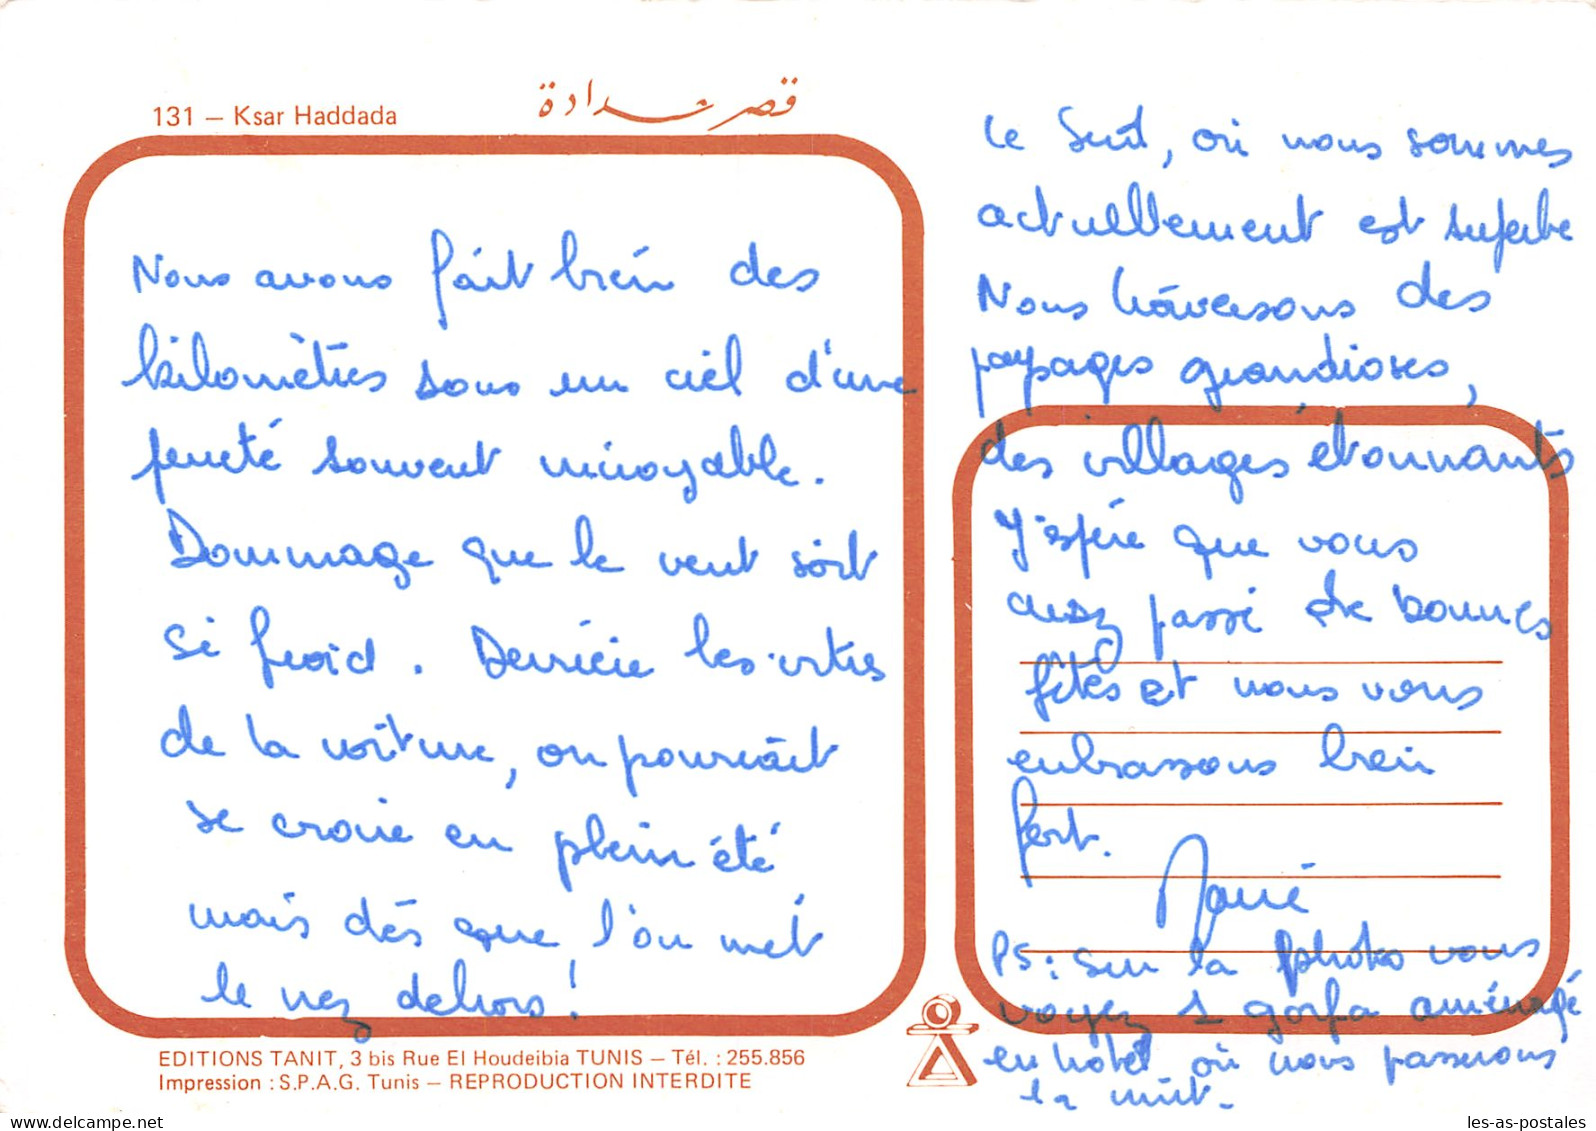 131 – Ksar Haddada
قصر حدادة
Nous avons fait bien des
kilomètres sous un ciel d'une
pureté souvent incroyable.
Dommage que le vent soit
si froid. Derrière les vitres
de la voiture, on pourrait
se croire en plein été
mais dès que l'on met
le nez dehors!
Le Sud, où nous sommes
actuellement est superbe
Nous traversons des
paysages grandioses,
des villages étonnants
J'espère que vous
avez passé de bonnes
fêtes et nous vous
embrassons bien
fort.
PS: sur la photo vous
voyez 1 gorfa aménagé
en hôtel où nous passerons
la nuit.
EDITIONS TANIT, 3 bis Rue El Houdeibia TUNIS – Tél. : 255.856
Impression : S.P.A.G. Tunis – REPRODUCTION INTERDITE
les-as-postales